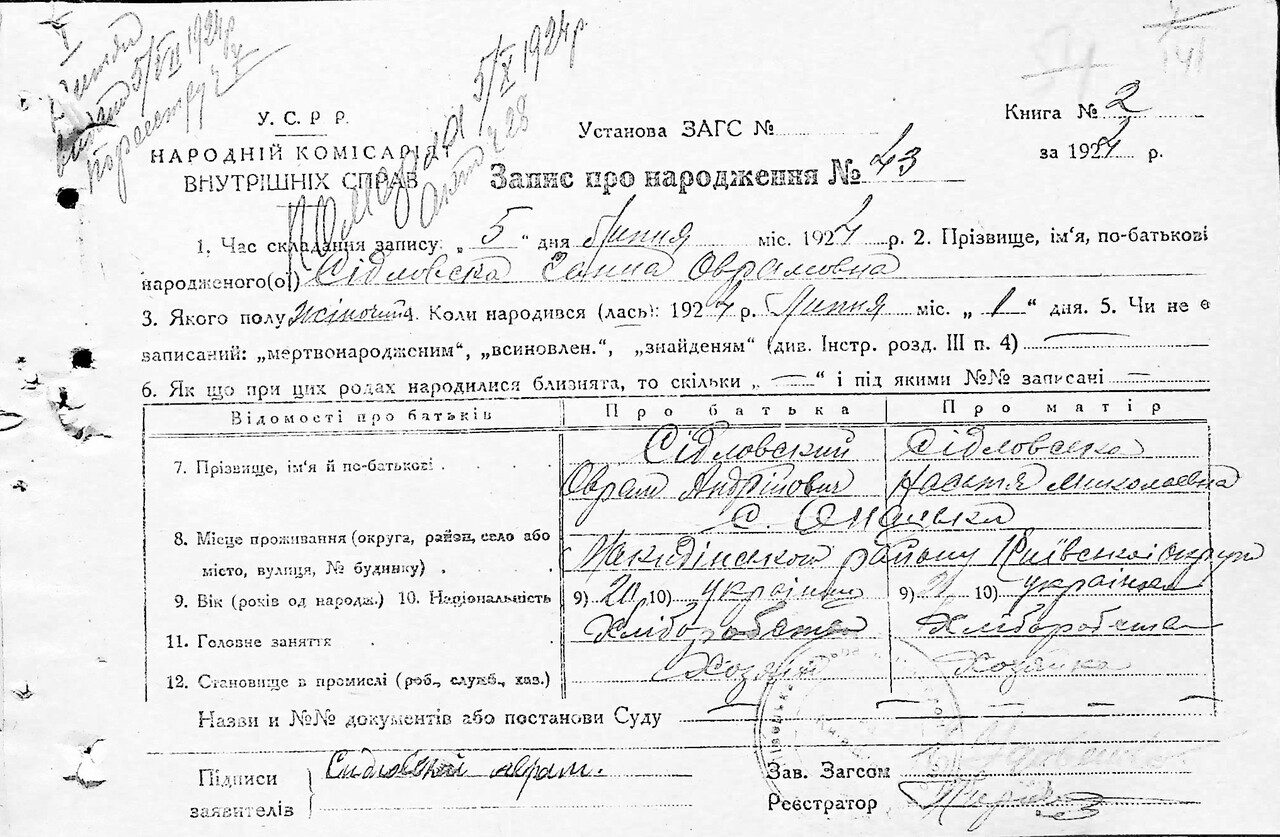 5/VII 1924 р.
5/X 1924 р.
№ 28
141
У. С. Р Р.
НАРОДНІЙ КОМІСАРІЯТ
ВНУТРІШНІХ СПРАВ
Установа ЗАГС №
Книга № 2
за 1924 р.
Запис про народження № 43
1. Час складання запису: „ 5 “ дня Липня міс. 1924 р. 2. Прізвище, ім'я, по-батькові
народженого(ої) Сідловска Ганна Оврамовна
3. Якого полу Жіночий 4. Коли народився (лась): 1924 р. Липня міс. „ 1 “ дня. 5. Чи не є
записаний: „мертвонародженим“, „всиновлен.“, „знайденям“ (див. Інстр. розд. III п. 4) —
6. Як що при цих родах народилися близнята, то скільки „ — “ і під якими №№ записані —
Відомості про батьків Про батька Про матір
Сідловский Сідловська
7. Прізвище, ім'я й по-батькові
Оврам Андрійович Настя Миколаевна
с.
8. Місце проживання (округа, район, село або
району Київської округи
місто, вулиця, № будинку)
9. Вік (років од народж.) 10. Національність 9) 20 10) україниць 9) 10) українка
11. Головне заняття Хліборобство Хліборобство
12. Становище в промислі (роб., служб., хаз.) Хозяїн Хозяйка
Назви и №№ документів або постанови Суду —
Підписи Сидловский Аврам.
заявителів
Зав. Загсом
Реєстратор